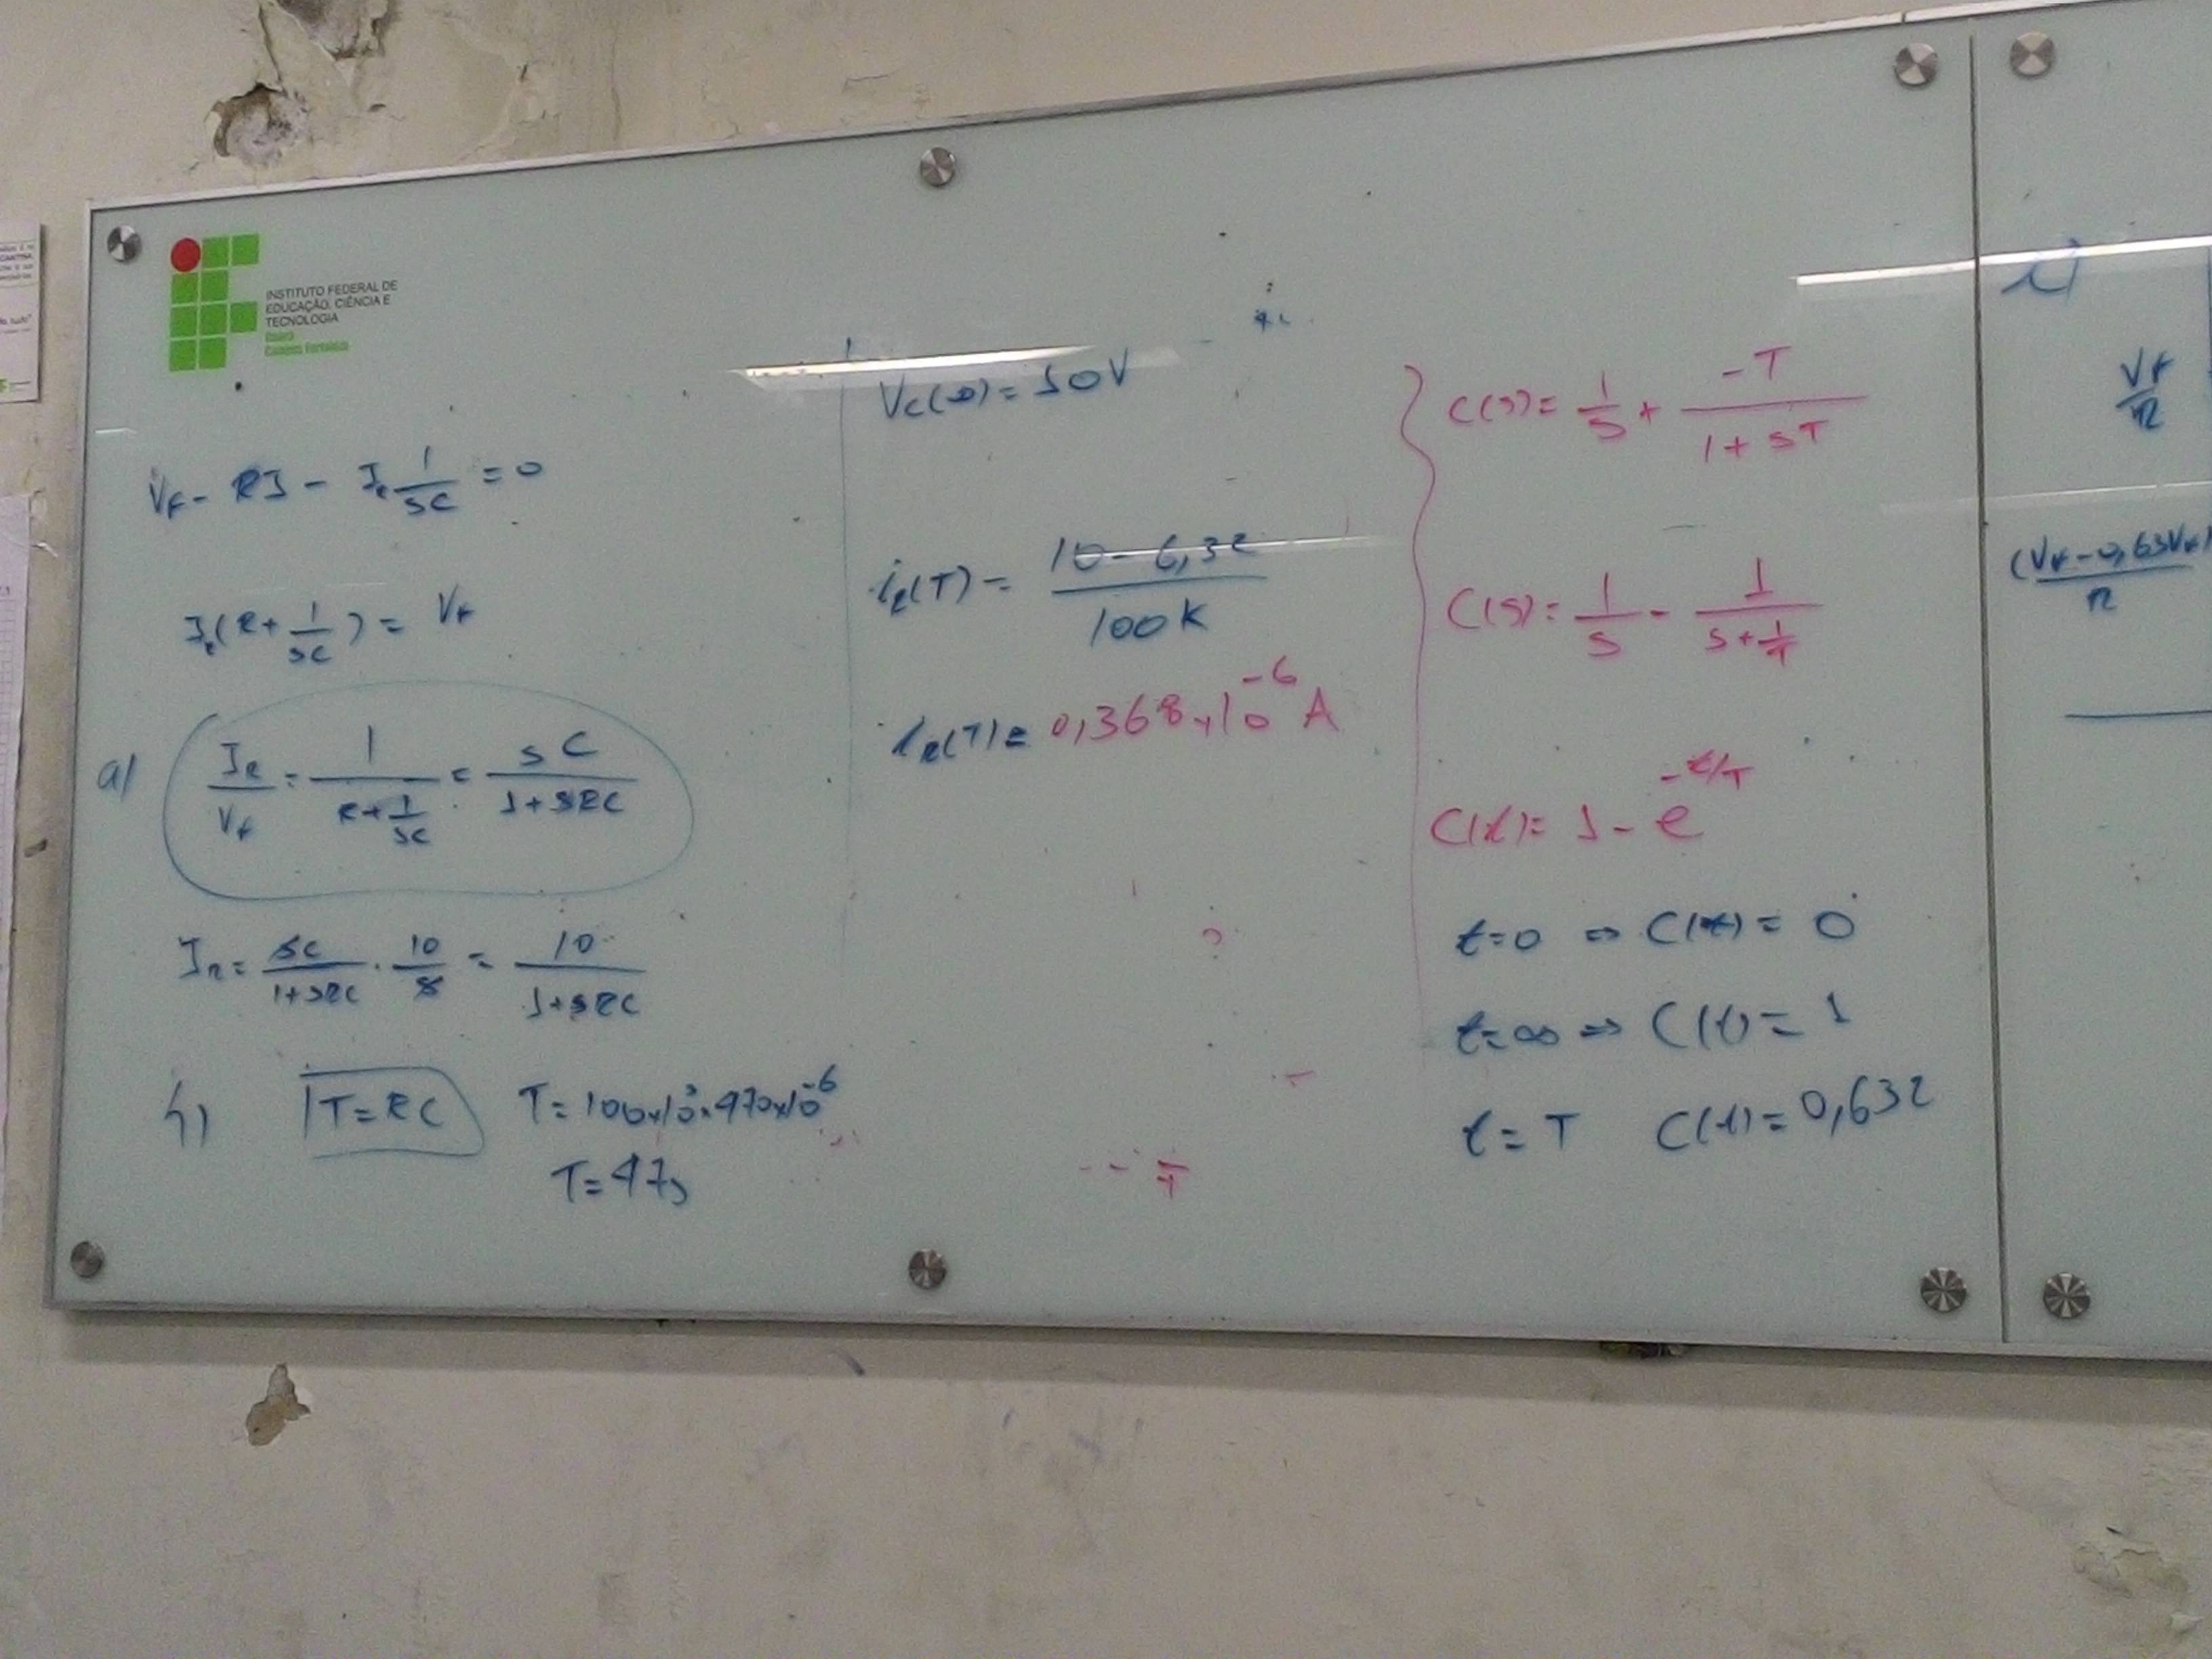 INSTITUTO FEDERAL DE
EDUCAÇÃO, CIÊNCIA E
TECNOLOGIA
Ceará
Campus Fortaleza
V_F - RI - I_R 1/SC = 0
I_R(R + 1/SC) = V_F
a) I_R/V_F = 1/(R + 1/SC) = SC/(1 + SRC)
I_R = SC/(1+SRC) · 10/S = 10/(1+SRC)
b) T = RC T = 100x10³x470x10⁻⁶
T = 47s
V_C(∞) = 10V
i_R(T) = (10 - 6,32)/100K
i_R(T) = 0,368x10⁻⁶ A
C(S) = 1/S + -T/(1 + ST)
C(S) = 1/S - 1/(S + 1/T)
C(t) = 1 - e^(-t/T)
t=0 ⇒ C(t) = 0
t=∞ ⇒ C(t) = 1
t = T C(t) = 0,632
V_F/R
(V_F - 0,63V_F)/R